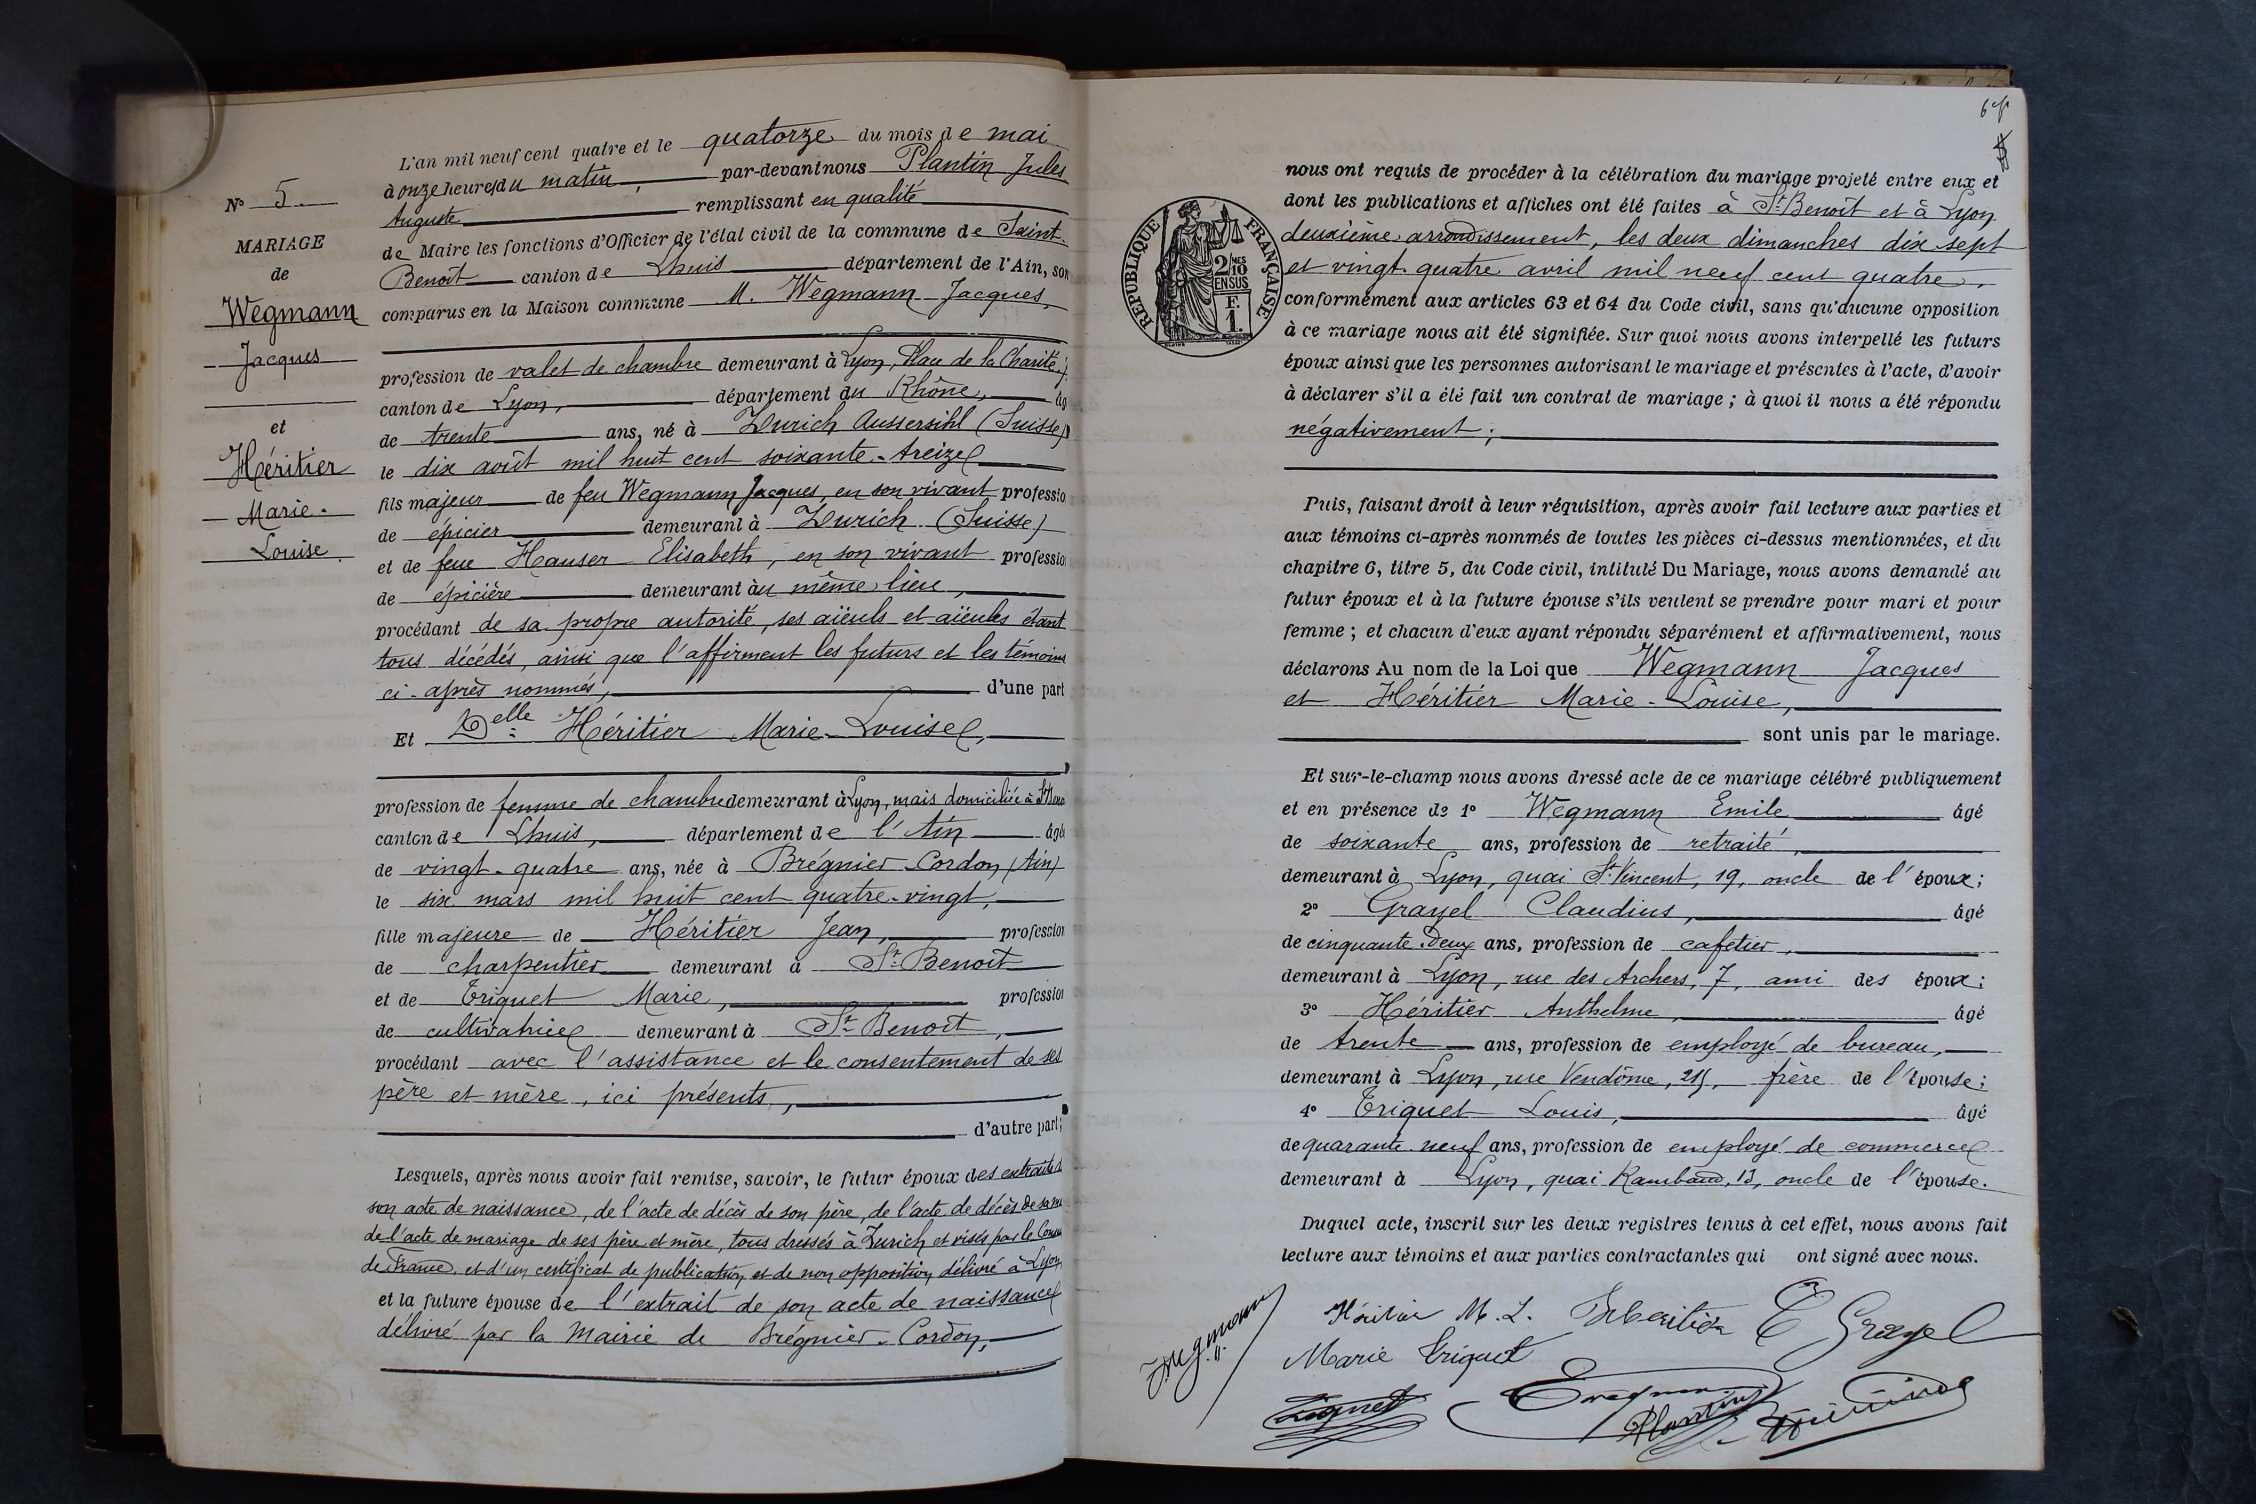 N° 5.
MARIAGE
de
Wegmann
Jacques
et
Héritier
Marie-
Louise.
L'an mil neuf cent quatre et le quatorze du mois de mai
à onze heures du matin, par-devant nous Plantin Jules
Auguste remplissant en qualité
de Maire les fonctions d'Officier de l'état civil de la commune de Saint-
Benoît canton de Lhuis département de l'Ain, son
comparus en la Maison commune M. Wegmann Jacques,
profession de valet de chambre demeurant à Lyon, Place de la Charité,
canton de Lyon, département du Rhône, âg
de trente ans, né à Zurich Aussersihl (Suisse)
le dix août mil huit cent soixante-treize
fils majeur de feu Wegmann Jacques, en son vivant professio
de épicier demeurant à Zurich (Suisse)
et de feue Hauser Elisabeth, en son vivant profession
de épicière demeurant au même lieu,
procédant de sa propre autorité, ses aïeuls et aïeules étant
tous décédés, ainsi que l'affirment les futurs et les témoins
ci-après nommés, d'une part
Et Delle Héritier Marie-Louise,
profession de femme de chambre demeurant à Lyon, mais domiciliée à St
canton de Lhuis, département de l'Ain âgé
de vingt-quatre ans, née à Brégnier-Cordon (Ain)
le six mars mil huit cent quatre-vingt,
fille majeure de Héritier Jean, profession
de charpentier demeurant à St Benoît
et de Triquet Marie, profession
de cultivatrice demeurant à St Benoît,
procédant avec l'assistance et le consentement de ses
père et mère, ici présents,
d'autre part;
Lesquels, après nous avoir fait remise, savoir, le futur époux des extraits d
son acte de naissance, de l'acte de décès de son père, de l'acte de décès de sa m
de l'acte de mariage de ses père et mère, tous dressés à Zurich et visés par le Consu
de France, et d'un certificat de publication et de non opposition délivré à Lyon,
et la future épouse de l'extrait de son acte de naissance
délivré par la Mairie de Brégnier-Cordon,
RÉPUBLIQUE FRANÇAISE
2/10 MES
EN SUS
F.
1.
nous ont requis de procéder à la célébration du mariage projeté entre eux et
dont les publications et affiches ont été faites à St Benoît et à Lyon
deuxième arrondissement, les deux dimanches dix sept
et vingt-quatre avril mil neuf cent quatre,
conformément aux articles 63 et 64 du Code civil, sans qu'aucune opposition
à ce mariage nous ait été signifiée. Sur quoi nous avons interpellé les futurs
époux ainsi que les personnes autorisant le mariage et présentes à l'acte, d'avoir
à déclarer s'il a été fait un contrat de mariage ; à quoi il nous a été répondu
négativement ;
Puis, faisant droit à leur réquisition, après avoir fait lecture aux parties et
aux témoins ci-après nommés de toutes les pièces ci-dessus mentionnées, et du
chapitre 6, titre 5, du Code civil, intitulé Du Mariage, nous avons demandé au
futur époux et à la future épouse s'ils veulent se prendre pour mari et pour
femme ; et chacun d'eux ayant répondu séparément et affirmativement, nous
déclarons Au nom de la Loi que Wegmann Jacques
et Héritier Marie-Louise,
sont unis par le mariage.
Et sur-le-champ nous avons dressé acte de ce mariage célébré publiquement
et en présence de 1° Wegmann Emile âgé
de soixante ans, profession de retraité,
demeurant à Lyon, quai St Vincent, 19, oncle de l'époux;
2° Grayel Claudius, âgé
de cinquante-deux ans, profession de cafetier,
demeurant à Lyon, rue des Archers, 7, ami des époux;
3° Héritier Anthelme, âgé
de trente ans, profession de employé de bureau,
demeurant à Lyon, rue Vendôme, frère de l'épouse;
4° Triquet Louis, âgé
de quarante-neuf ans, profession de employé de commerce
demeurant à Lyon, quai Rambaud, 13, oncle de l'épouse.
Duquel acte, inscrit sur les deux registres tenus à cet effet, nous avons fait
lecture aux témoins et aux parties contractantes qui ont signé avec nous.
Héritier M. L. Héritier C Grayel
J. Wegmann
Marie Triquet
Triquet
E Wegmann
Plantin